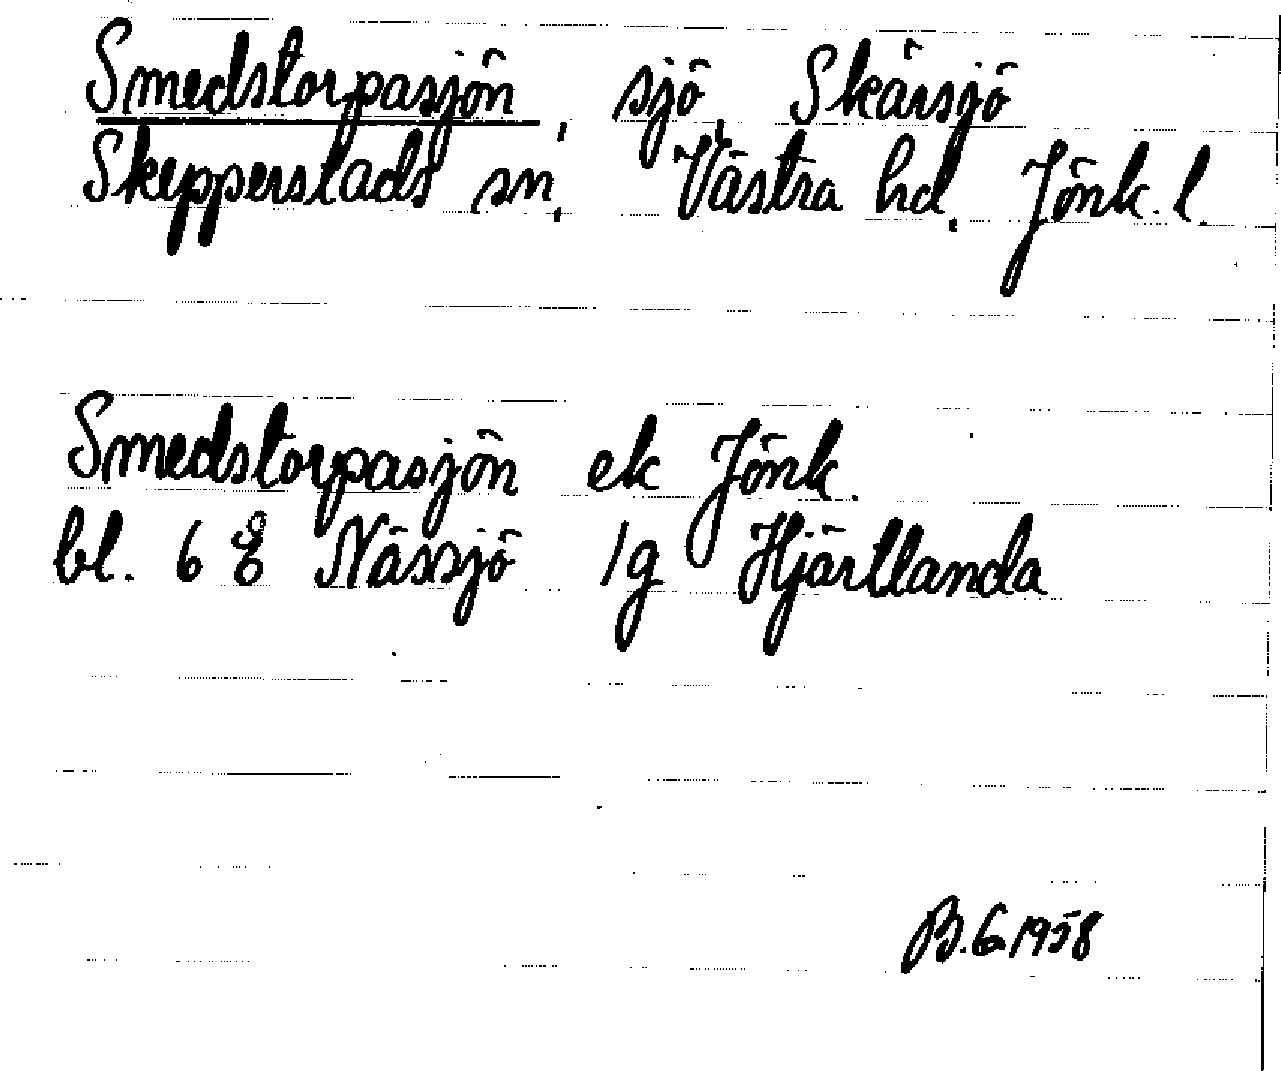 Smedstorpasjön, sjö, Skärsjö
Skepperstads sn, Västra hd, Jönk. l.
Smedstorpasjön ek Jönk.
bl. 6 Nässjö 1g Hjärtlanda
B.G. 1958